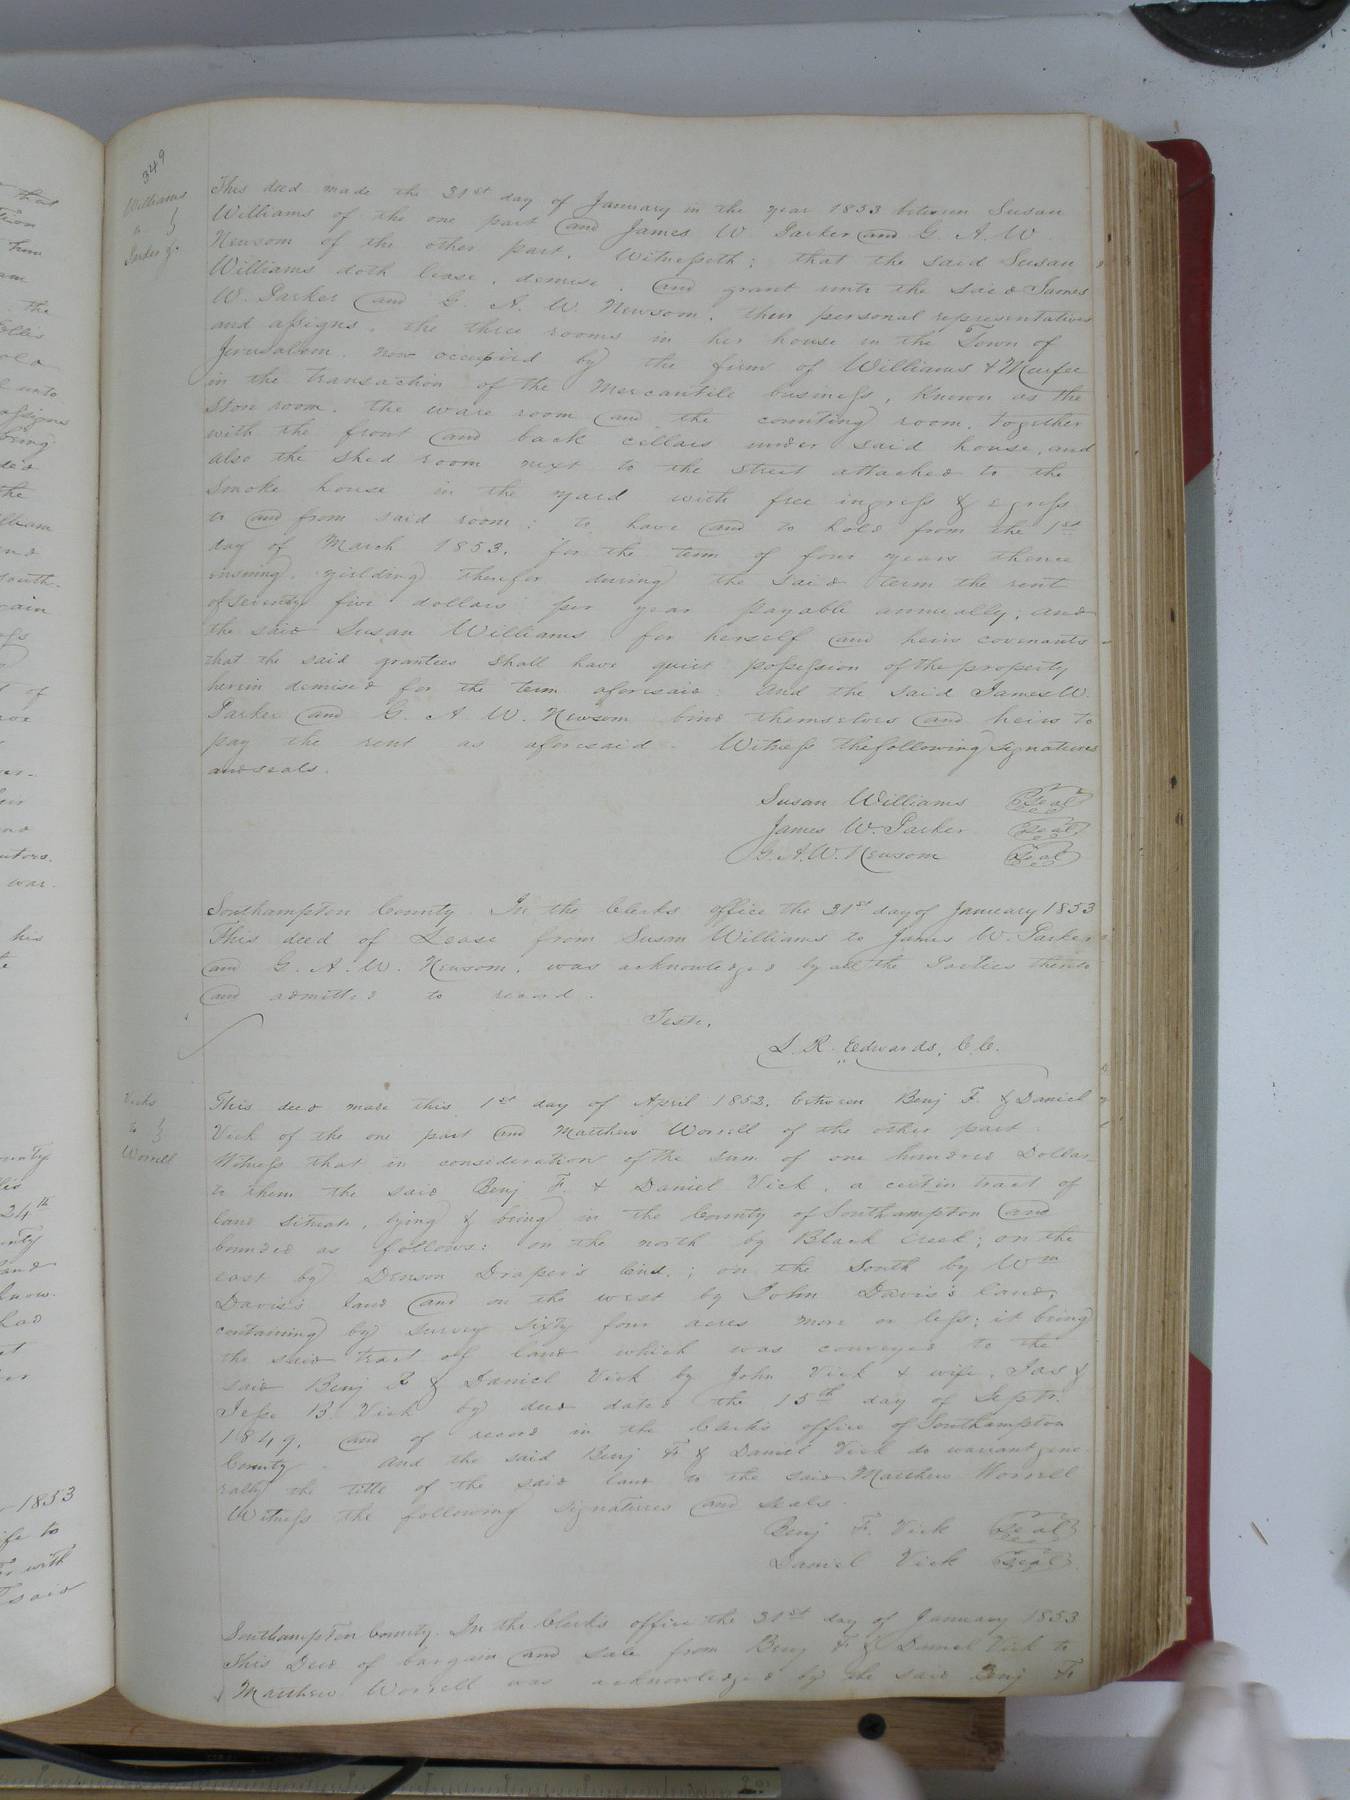 349
Williams
to }
Parker &c.
This deed made the 31st day of January in the year 1853 between Susan
Williams of the one part and James W. Parker and G. A. W.
Newsom of the other part. Witnesseth: that the said Susan
Williams doth lease, demise, and grant unto the said James
W. Parker and G. A. W. Newsom, their personal representatives
and assigns, the three rooms in her house in the Town of
Jerusalem, now occupied by the firm of Williams & Murfee
in the transaction of the Mercantile business, Known as the
Store room, the ware room and the counting room, together
with the front and back cellars under said house, and
also the shed room next to the street attached to the
Smoke house in the yard with free ingress & egress
to and from said room: to have and to hold from the 1st
day of March 1853, for the term of four years thence
ensuing, yielding therefor during the said term the rent
of seventy five dollars per year payable annually; and
the said Susan Williams for herself and heirs covenants
that the said grantees shall have quiet possession of the property
herein demised for the term aforesaid: And the said James W.
Parker and G. A. W. Newsom bind themselves and heirs to
pay the rent as aforesaid. Witness the following signatures
and seals.
Susan Williams Seal
James W. Parker Seal
G. A. W. Newsom Seal
Southampton County. In the Clerks office the 31st day of January 1853
This deed of Lease from Susan Williams to James W. Parker
and G. A. W. Newsom, was acknowledged by all the Parties thereto
and admitted to record.
Teste,
L. R. Edwards, C. C.
Vicks
to }
Worrell
This deed made this 1st day of April 1852, between Benj F. & Daniel
Vick of the one part and Matthew Worrell of the other part.
Witness that in consideration of the sum of one hundred Dollars
to them the said Benj F. & Daniel Vick, a certain tract of
land situate, lying & being in the County of Southampton and
bounded as follows: on the north by Black Creek; on the
east by Denson Draper's land; on the South by Wm
Davis's land and on the west by John Davis's land,
containing by survey sixty four acres more or less; it being
the said tract of land which was conveyed to the
said Benj F & Daniel Vick by John Vick & wife, Jas &
Jesse B. Vick by deed dated the 15th day of Septr.
1849, and of record in the Clerks office of Southampton
County. And the said Benj F & Daniel Vick do warrant gene-
rally the title of the said land to the said Matthew Worrell
Witness the following signatures and seals.
Benj F. Vick Seal
Daniel Vick Seal
Southampton County. In the Clerks office the 31st day of January 1853
This Deed of bargain and sale from Benj F & Daniel Vick to
Matthew Worrell was acknowledged by the said Benj F.